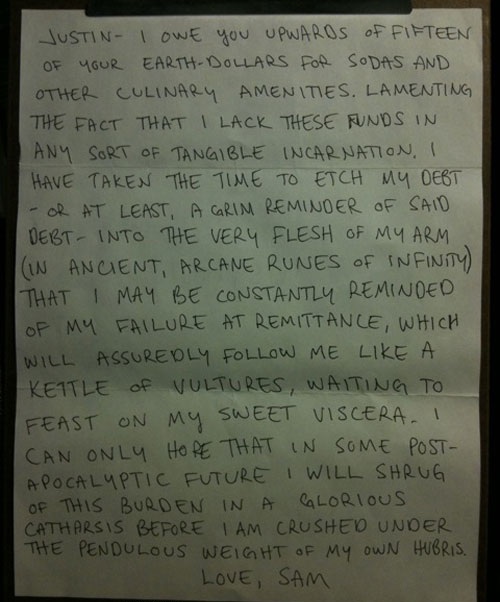 JUSTIN- I OWE YOU UPWARDS OF FIFTEEN
OF YOUR EARTH-DOLLARS FOR SODAS AND
OTHER CULINARY AMENITIES. LAMENTING
THE FACT THAT I LACK THESE FUNDS IN
ANY SORT OF TANGIBLE INCARNATION, I
HAVE TAKEN THE TIME TO ETCH MY DEBT
- OR AT LEAST, A GRIM REMINDER OF SAID
DEBT- INTO THE VERY FLESH OF MY ARM
(IN ANCIENT, ARCANE RUNES OF INFINITY)
THAT I MAY BE CONSTANTLY REMINDED
OF MY FAILURE AT REMITTANCE, WHICH
WILL ASSUREDLY FOLLOW ME LIKE A
KETTLE OF VULTURES, WAITING TO
FEAST ON MY SWEET VISCERA. I
CAN ONLY HOPE THAT IN SOME POST-
APOCALYPTIC FUTURE I WILL SHRUG
OF THIS BURDEN IN A GLORIOUS
CATHARSIS BEFORE I AM CRUSHED UNDER
THE PENDULOUS WEIGHT OF MY OWN HUBRIS.
LOVE, SAM